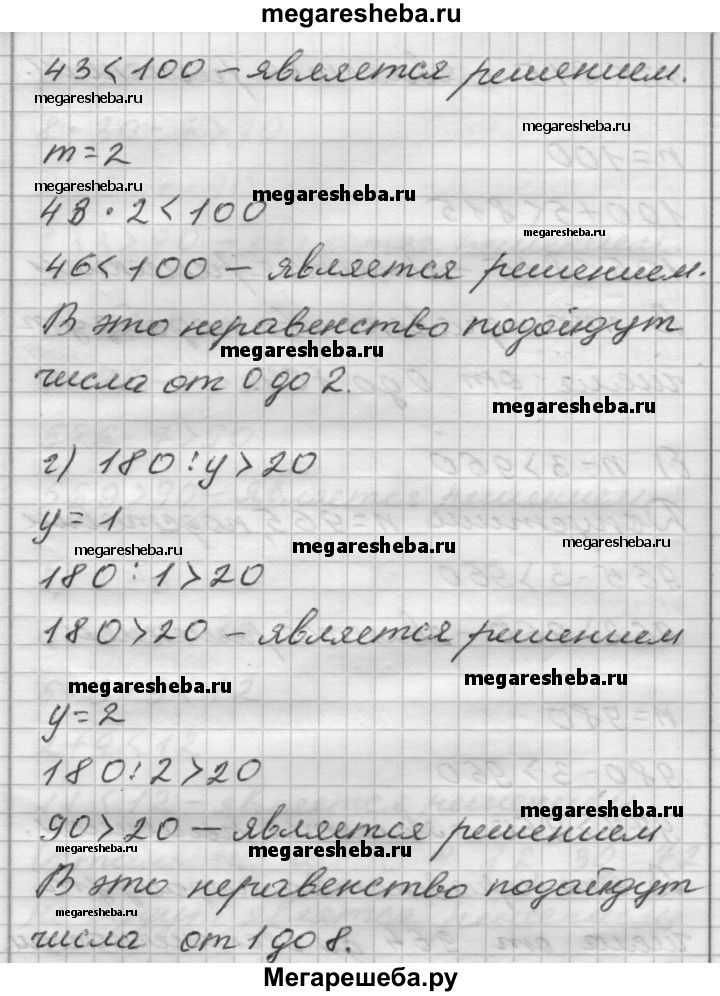 megaresheba.ru
43 < 100 – является решением.
megaresheba.ru
megaresheba.ru
m = 2
megaresheba.ru
megaresheba.ru
43 · 2 < 100
megaresheba.ru
46 < 100 – является решением.
В это неравенство подойдут
megaresheba.ru
числа от 0 до 2.
megaresheba.ru
г) 180 : y > 20
y = 1
megaresheba.ru
megaresheba.ru
megaresheba.ru
180 : 1 > 20
180 > 20 – является решением
megaresheba.ru
megaresheba.ru
y = 2
180 : 2 > 20
megaresheba.ru
90 > 20 – является решением
megaresheba.ru
megaresheba.ru
В это неравенство подойдут
megaresheba.ru
числа от 1 до 8.
Мегарешеба.ру